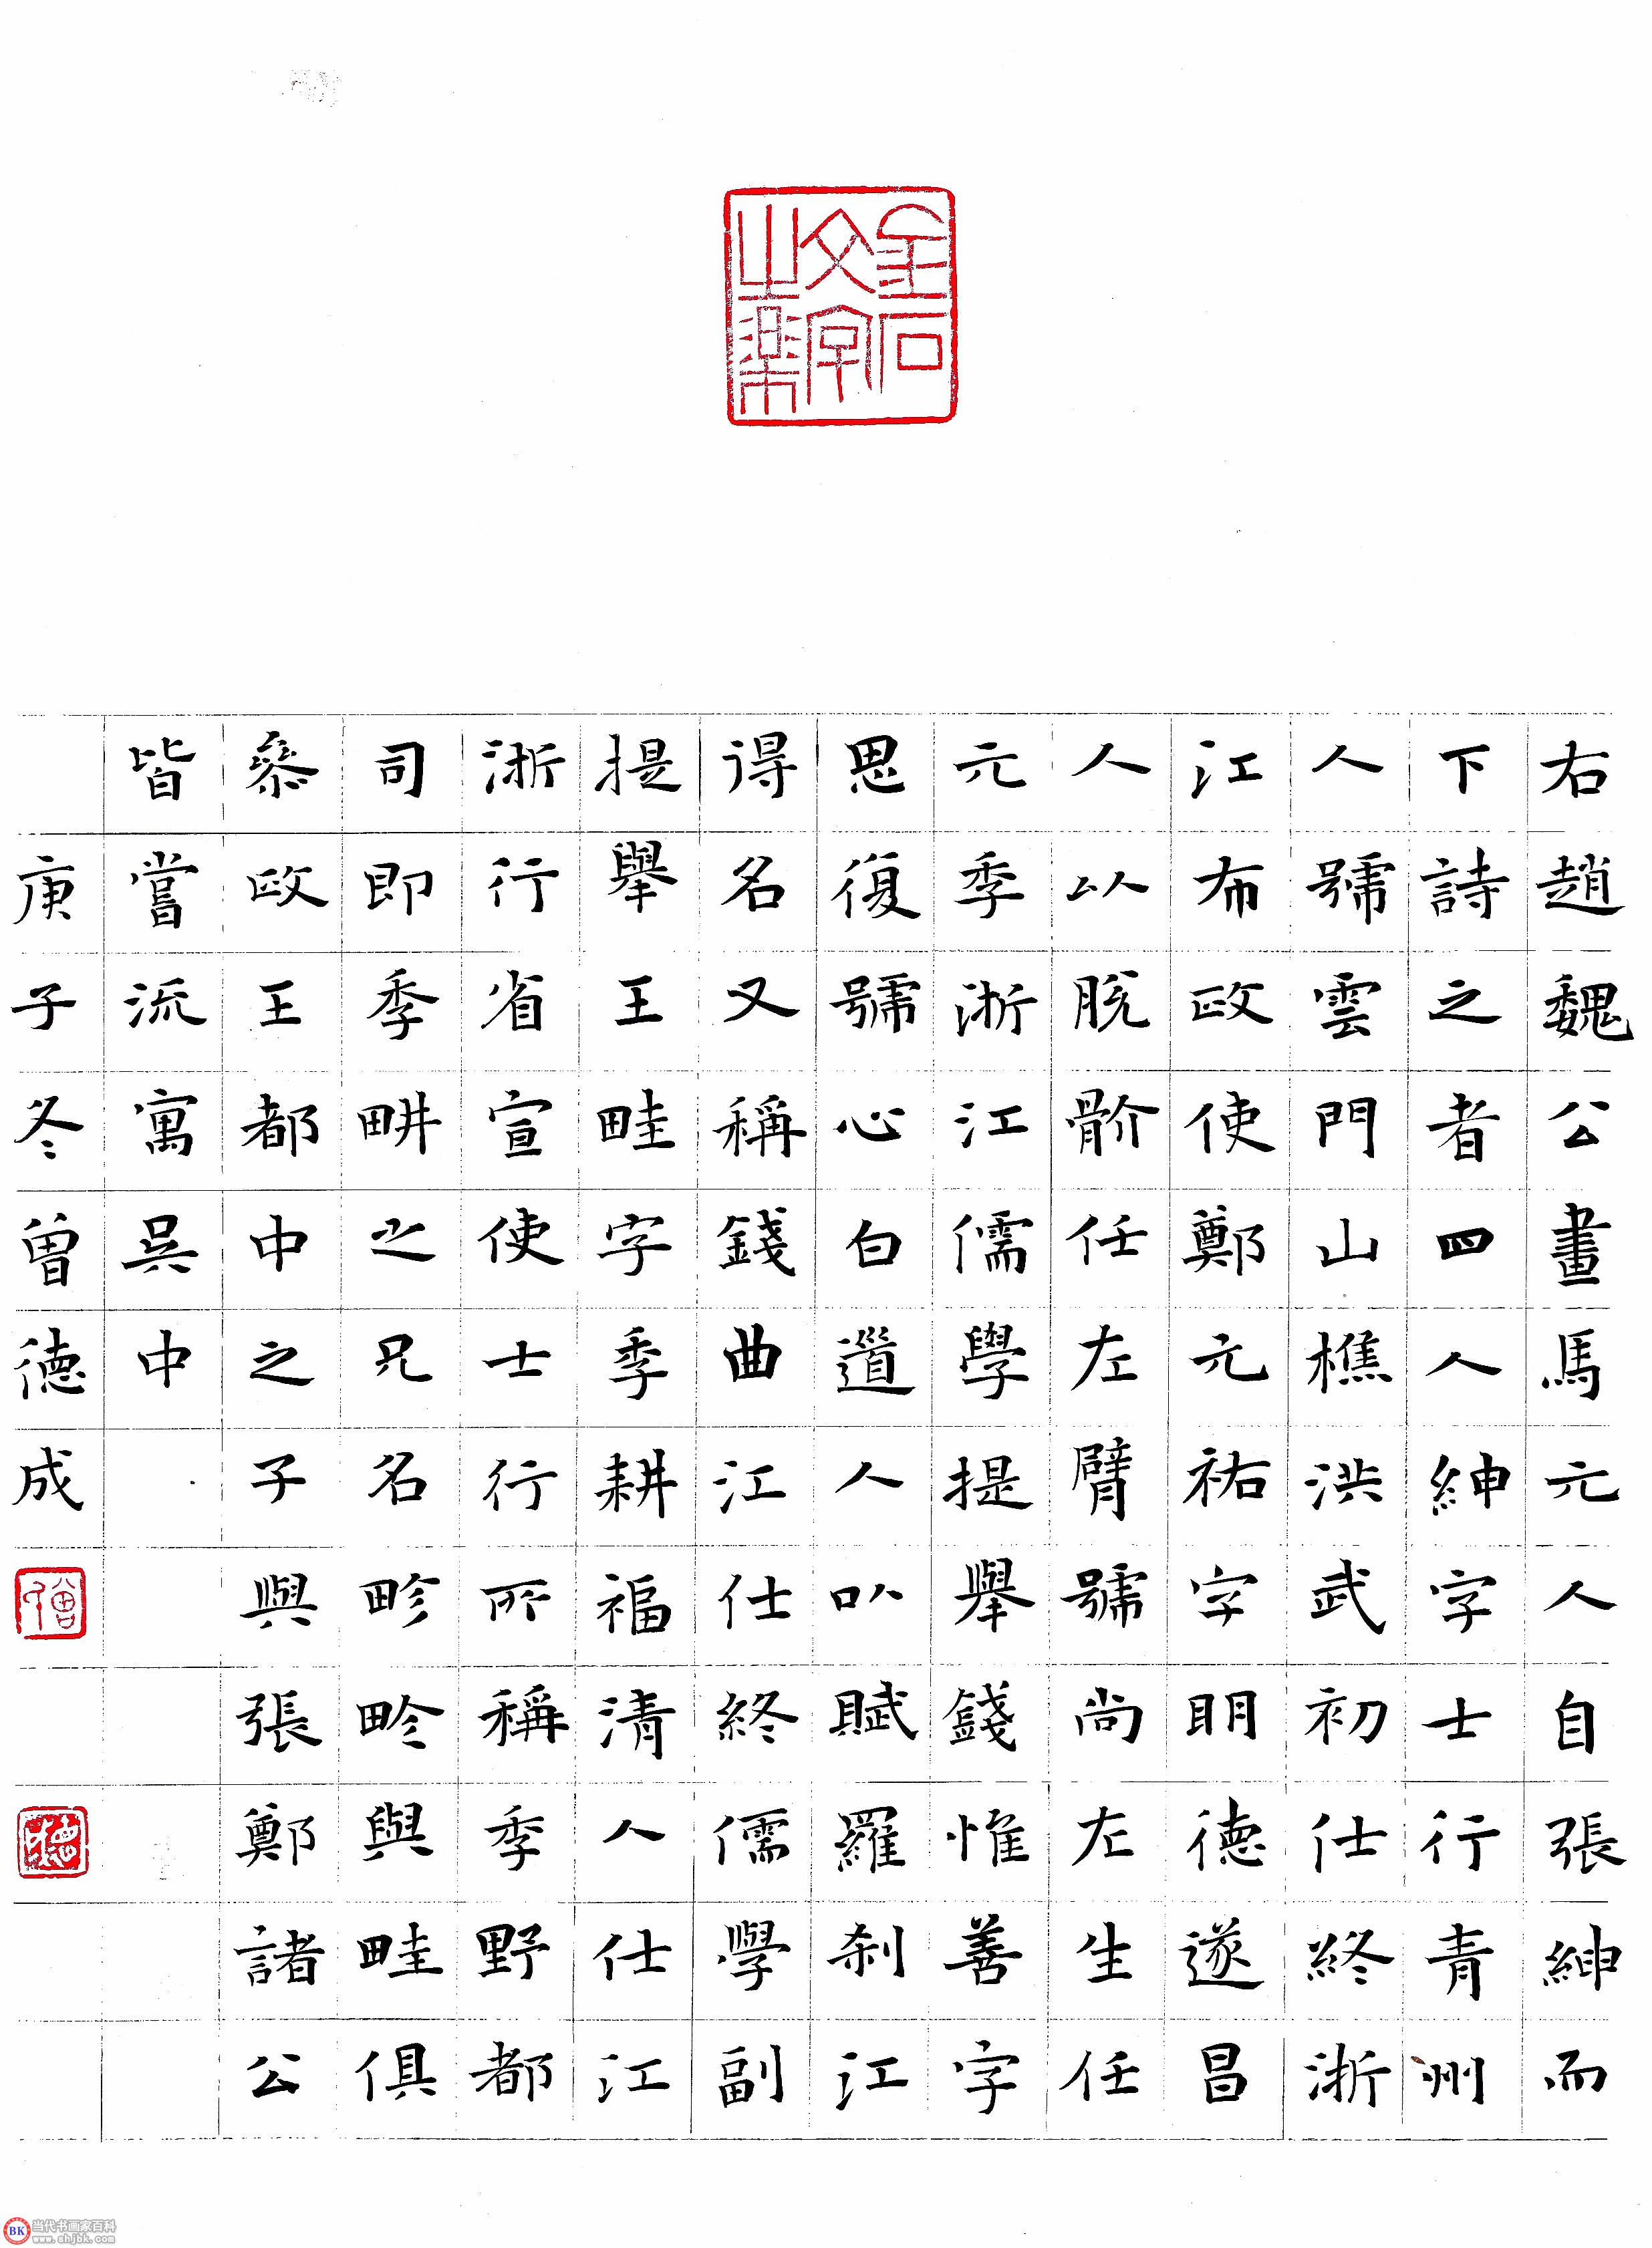 金石文字之樂
右趙魏公畫馬元人自張紳而
下詩之者四人紳字士行青州
人號雲門山樵洪武初仕終浙
江布政使鄭元祐字明德遂昌
人以脫骱任左臂號尚左生任
元季浙江儒學提舉錢惟善字
思復號心白道人以賦羅刹江
得名又稱錢曲江仕終儒學副
提舉王畦字季耕福清人仕江
浙行省宣使士行所稱季野都
司即季畊之兄名畛畛與畦俱
叅政王都中之子與張鄭諸公
皆嘗流寓吳中
庚子冬曾德成
当代书画家百科
www.shjbk.com
BK